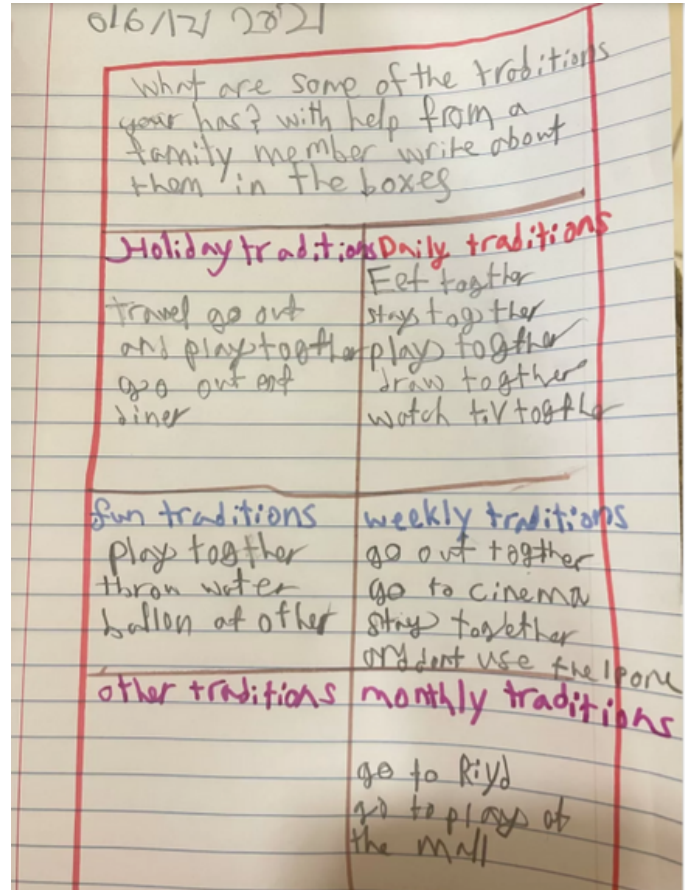 016/12/ 2021
What are some of the troditions
your has? with help from a
family member write about
them in the boxes
Holiday traditions
travel go out
and play together
goo out ent
diner
Daily traditions
Eet togther
stays togo ther
plays togther
draw togther
watch t.V togther
fun traditions
play together
thron water
ballon at other
weekly traditions
go out togther
go to cinema
stay together
and dont use the Ipone
other traditions
monthly traditions
go to Riyd
go to plays at
the mall